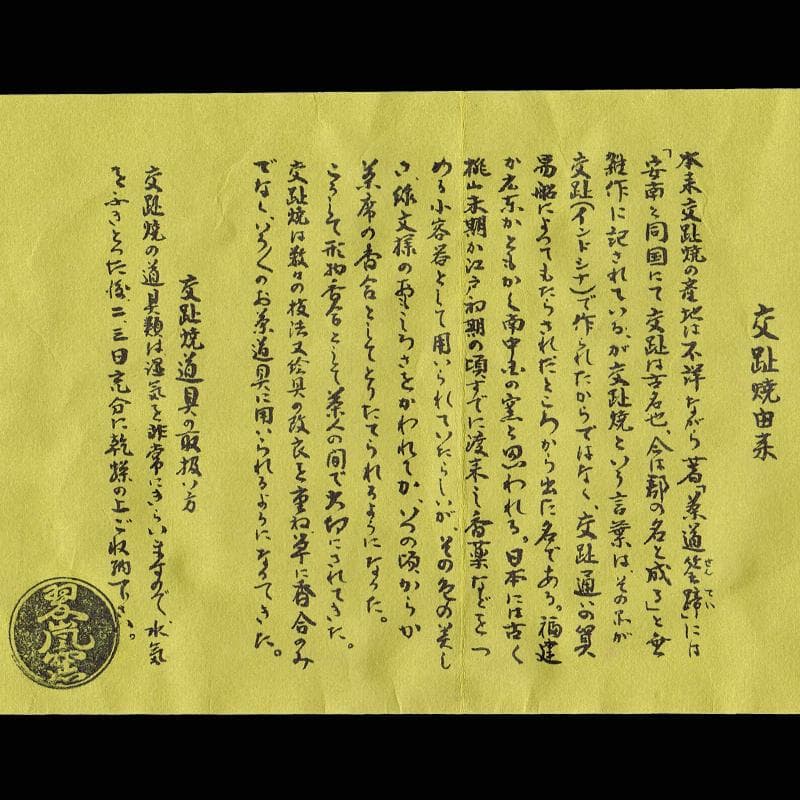 交趾焼由来
本来交趾焼の産地は不詳ながら著「茶道筌蹄」には
せんてい
「安南と同国にて交趾は古名也、今は郡の名と成る」と
雑作に記されている、が交趾焼という言葉は、その品が
交趾(インドシナ)で作られたからではなく、交趾通いの貿
易船によってもたらされたところから出た名である。福建
か広東かともかく南中国の窯と思われる。日本には古く
桃山末期か江戸初期の頃すでに渡来し香薬などをつ
める小容器として用いられていたらしいが、その色の美し
さ、線文様のおもしろさをかわれてか、いつの頃からか
茶席の香合としてとりたてられるようになった。
こうして形物香合として茶人の間で大切にされてきた。
交趾焼は数々の技法又絵具の改良を重ね、単に香合のみ
でなく、いろいろのお茶道具に用いられるようになってきた。
交趾焼道具の取扱い方
交趾焼の道具類は湿気を非常にきらいますので、水気
をふきとった後、二、三日充分に乾燥の上ご収納下さい。
翠嵐窯